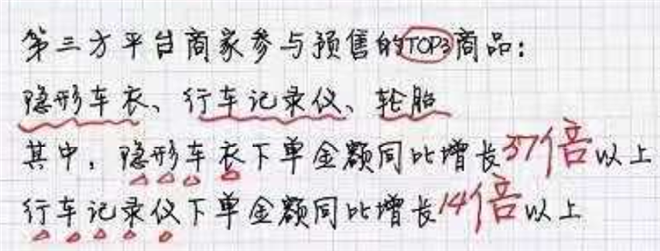 第三方平台商家参与预售的TOP3商品：
隐形车衣、行车记录仪、轮胎
其中，隐形车衣下单金额同比增长37倍以上
行车记录仪下单金额同比增长14倍以上